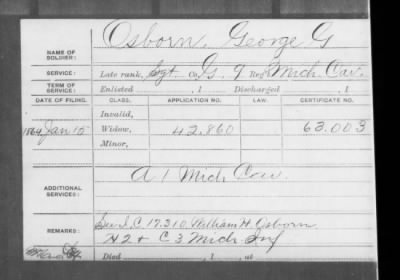 Osborn, George G
NAME OF SOLDIER:
SERVICE: Late rank, Sgt Co. G, 9 Reg Mich. Cav.
TERM OF SERVICE: Enlisted , 1 Discharged , 1
DATE OF FILING. CLASS. APPLICATION NO. LAW. CERTIFICATE NO.
Invalid,
1864 Jan 15 Widow, 42,860 63.003
Minor,
ADDITIONAL SERVICES: A 1 Mich Cav
REMARKS: See I. C 17.310 William H. Osborn
H 2 & C 3 Mich. Inf
Died , 1 , at